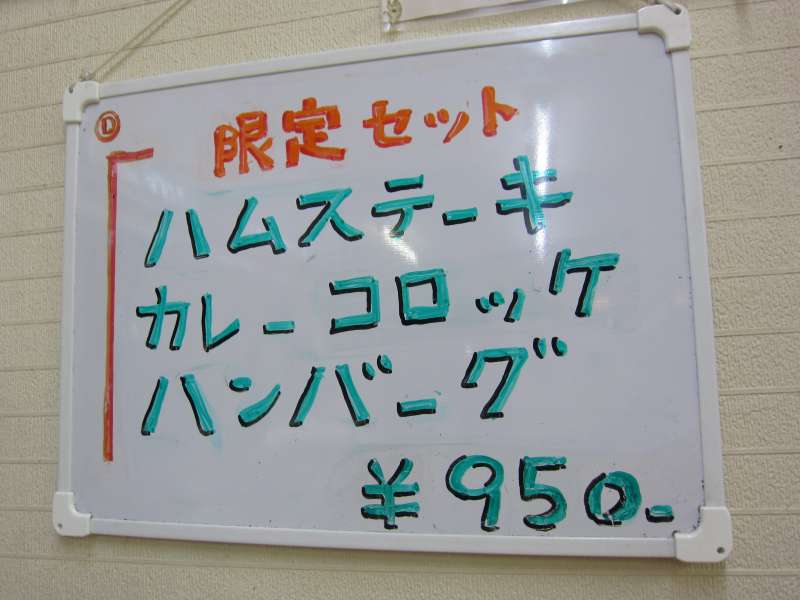 Ⓓ 限定セット
ハムステーキ
カレーコロッケ
ハンバーグ
¥950-